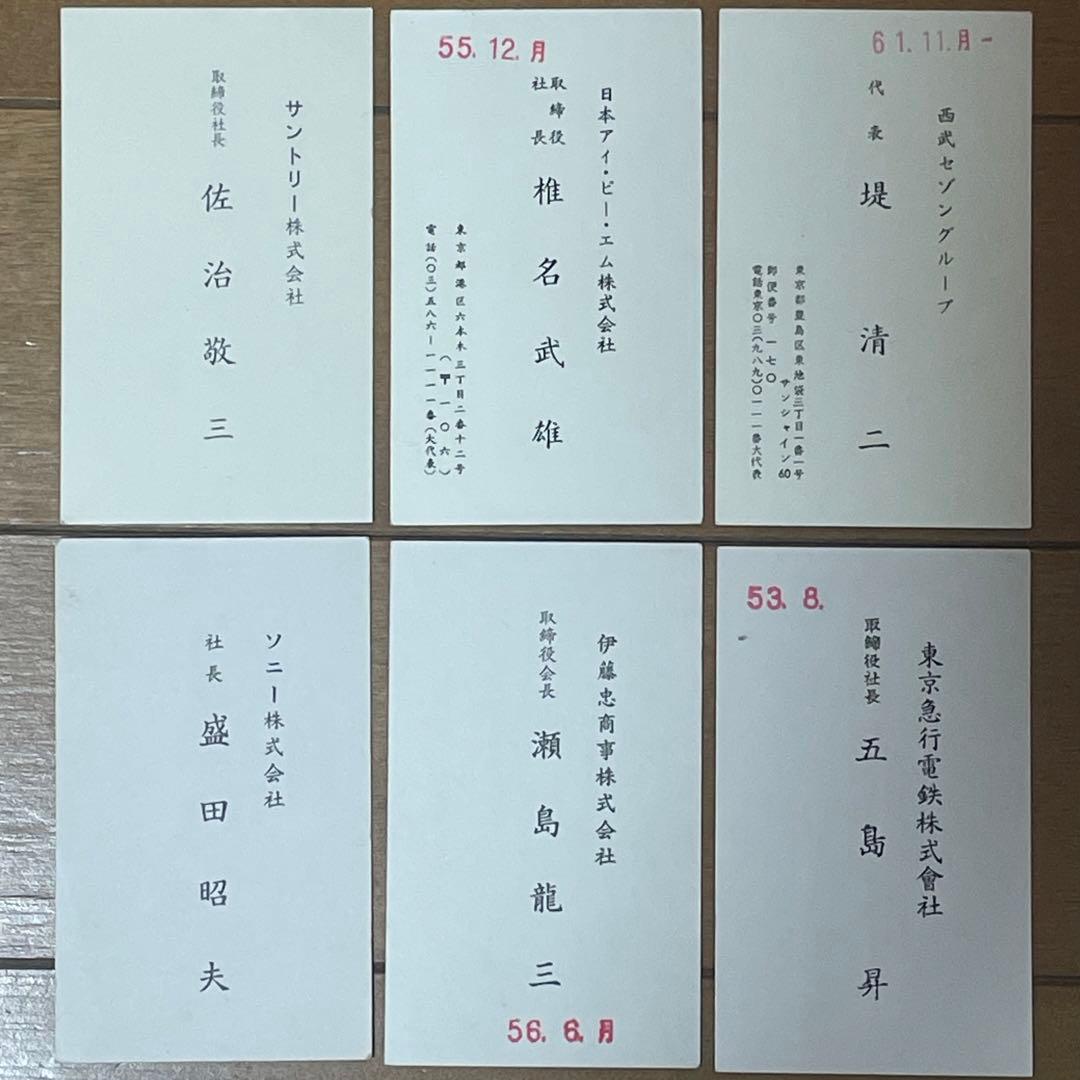 サントリー株式会社
取締役社長
佐治敬三
55.12.月
日本アイ・ビー・エム株式会社
取締役
社長
椎名武雄
東京都港区六本木三丁目二番十二号
(〒一〇六)
電話(〇三)五八六―一一一一番(大代表)
61.11.月-
西武セゾングループ
代表
堤清二
東京都豊島区東池袋三丁目一番一号
サンシャイン60
郵便番号一七〇
電話東京〇三(九八九)〇一一一番大代表
ソニー株式会社
社長
盛田昭夫
伊藤忠商事株式会社
取締役会長
瀬島龍三
56.6.月
53.8.
東京急行電鉄株式會社
取締役社長
五島昇